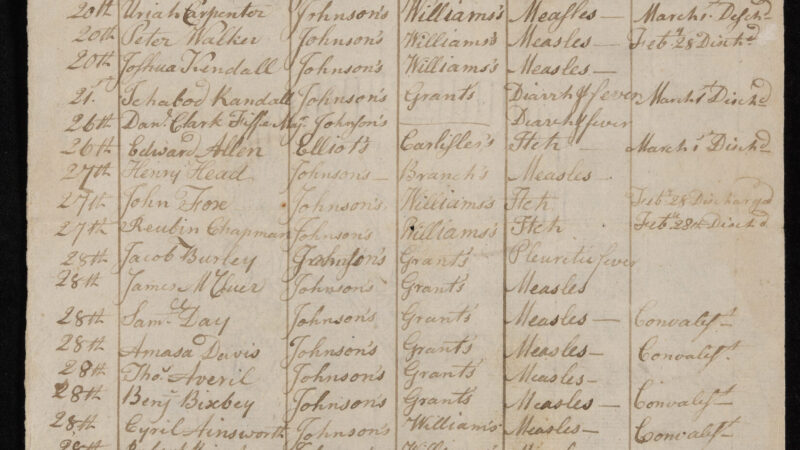 20th Uriah Carpenter Johnson's Williams's Measles — March 1st Disch'd
20th Peter Walker Johnson's Williams's Measles — Feby 28 Disch'd
20th Joshua Kendall Johnson's Williams's Measles —
21st Ichabod Randall Johnson's Grants' Diarrh & fever March 1st Disch'd
26th Danl Clark Fife Maj. Johnson's Diarrh & fever
26th Edward Allen Elliot's Carlisle's Itch — March 1st Disch'd
27th Henry Head Johnson's — Branch's Measles
27th John Fox Johnson's Williams's Itch Feby 28 Discharg'd
27th Reubin Chapman Johnson's Williams's Itch Feby 28th Disch'd
28th Jacob Burley Johnson's Grants' Pleuritic fever
28th James McCluer Johnson's Grants' Measles
28th Saml Day Johnson's Grants' Measles — Convalest
28th Amasa Davis Johnson's Grants' Measles — Convalest
28th Thos Averil Johnson's Grants' Measles —
28th Benj Bixbey Johnson's Grants Measles — Convalest
28th Cyril Ainsworth Johnson's Williams's Measles — Convalest
28th